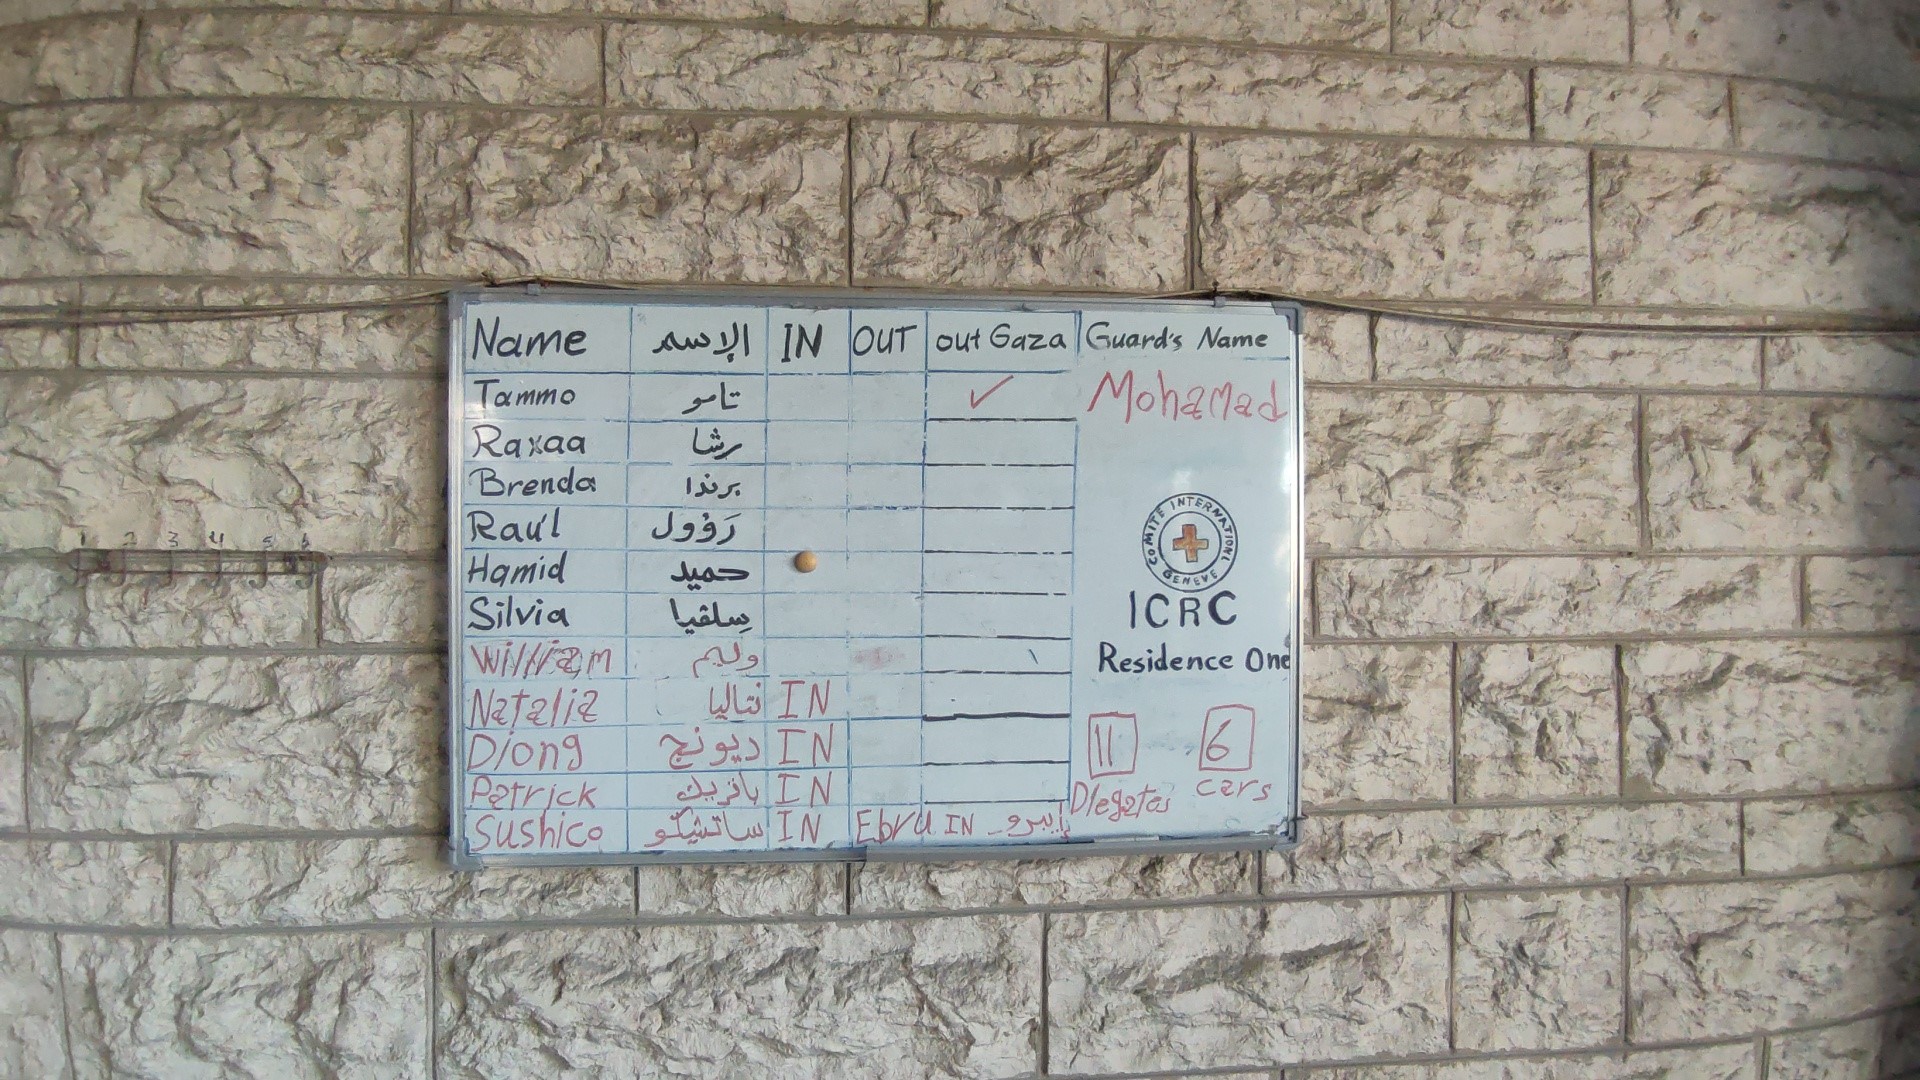 Name الإسم IN OUT out Gaza Guard's Name
Tammo تامو ✓ Mohamad
Raxaa رشا
Brenda برندا
Raúl رَؤول
Hamid حميد
Silvia سِلفيا
William وليم
Natalia نتاليا IN
Diong ديونج IN
Patrick باتريك IN
Sushico ساتشيكو IN Ebru IN إيبرو
COMITÉ INTERNATIONAL GENEVE
ICRC
Residence One
11 6
Dlegates cars
1 2 3 4 5 6